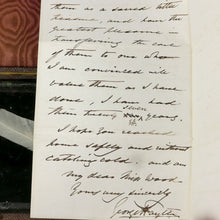 them as a sacred
treasure, and have the
greatest pleasure in
transferring the care
of them to one who
I am convinced will
value them as I have
done, I have had
them twenty seven years.
I hope you reached
home safely and without
catching cold. and am
my dear Miss Wood
Yours very sincerely